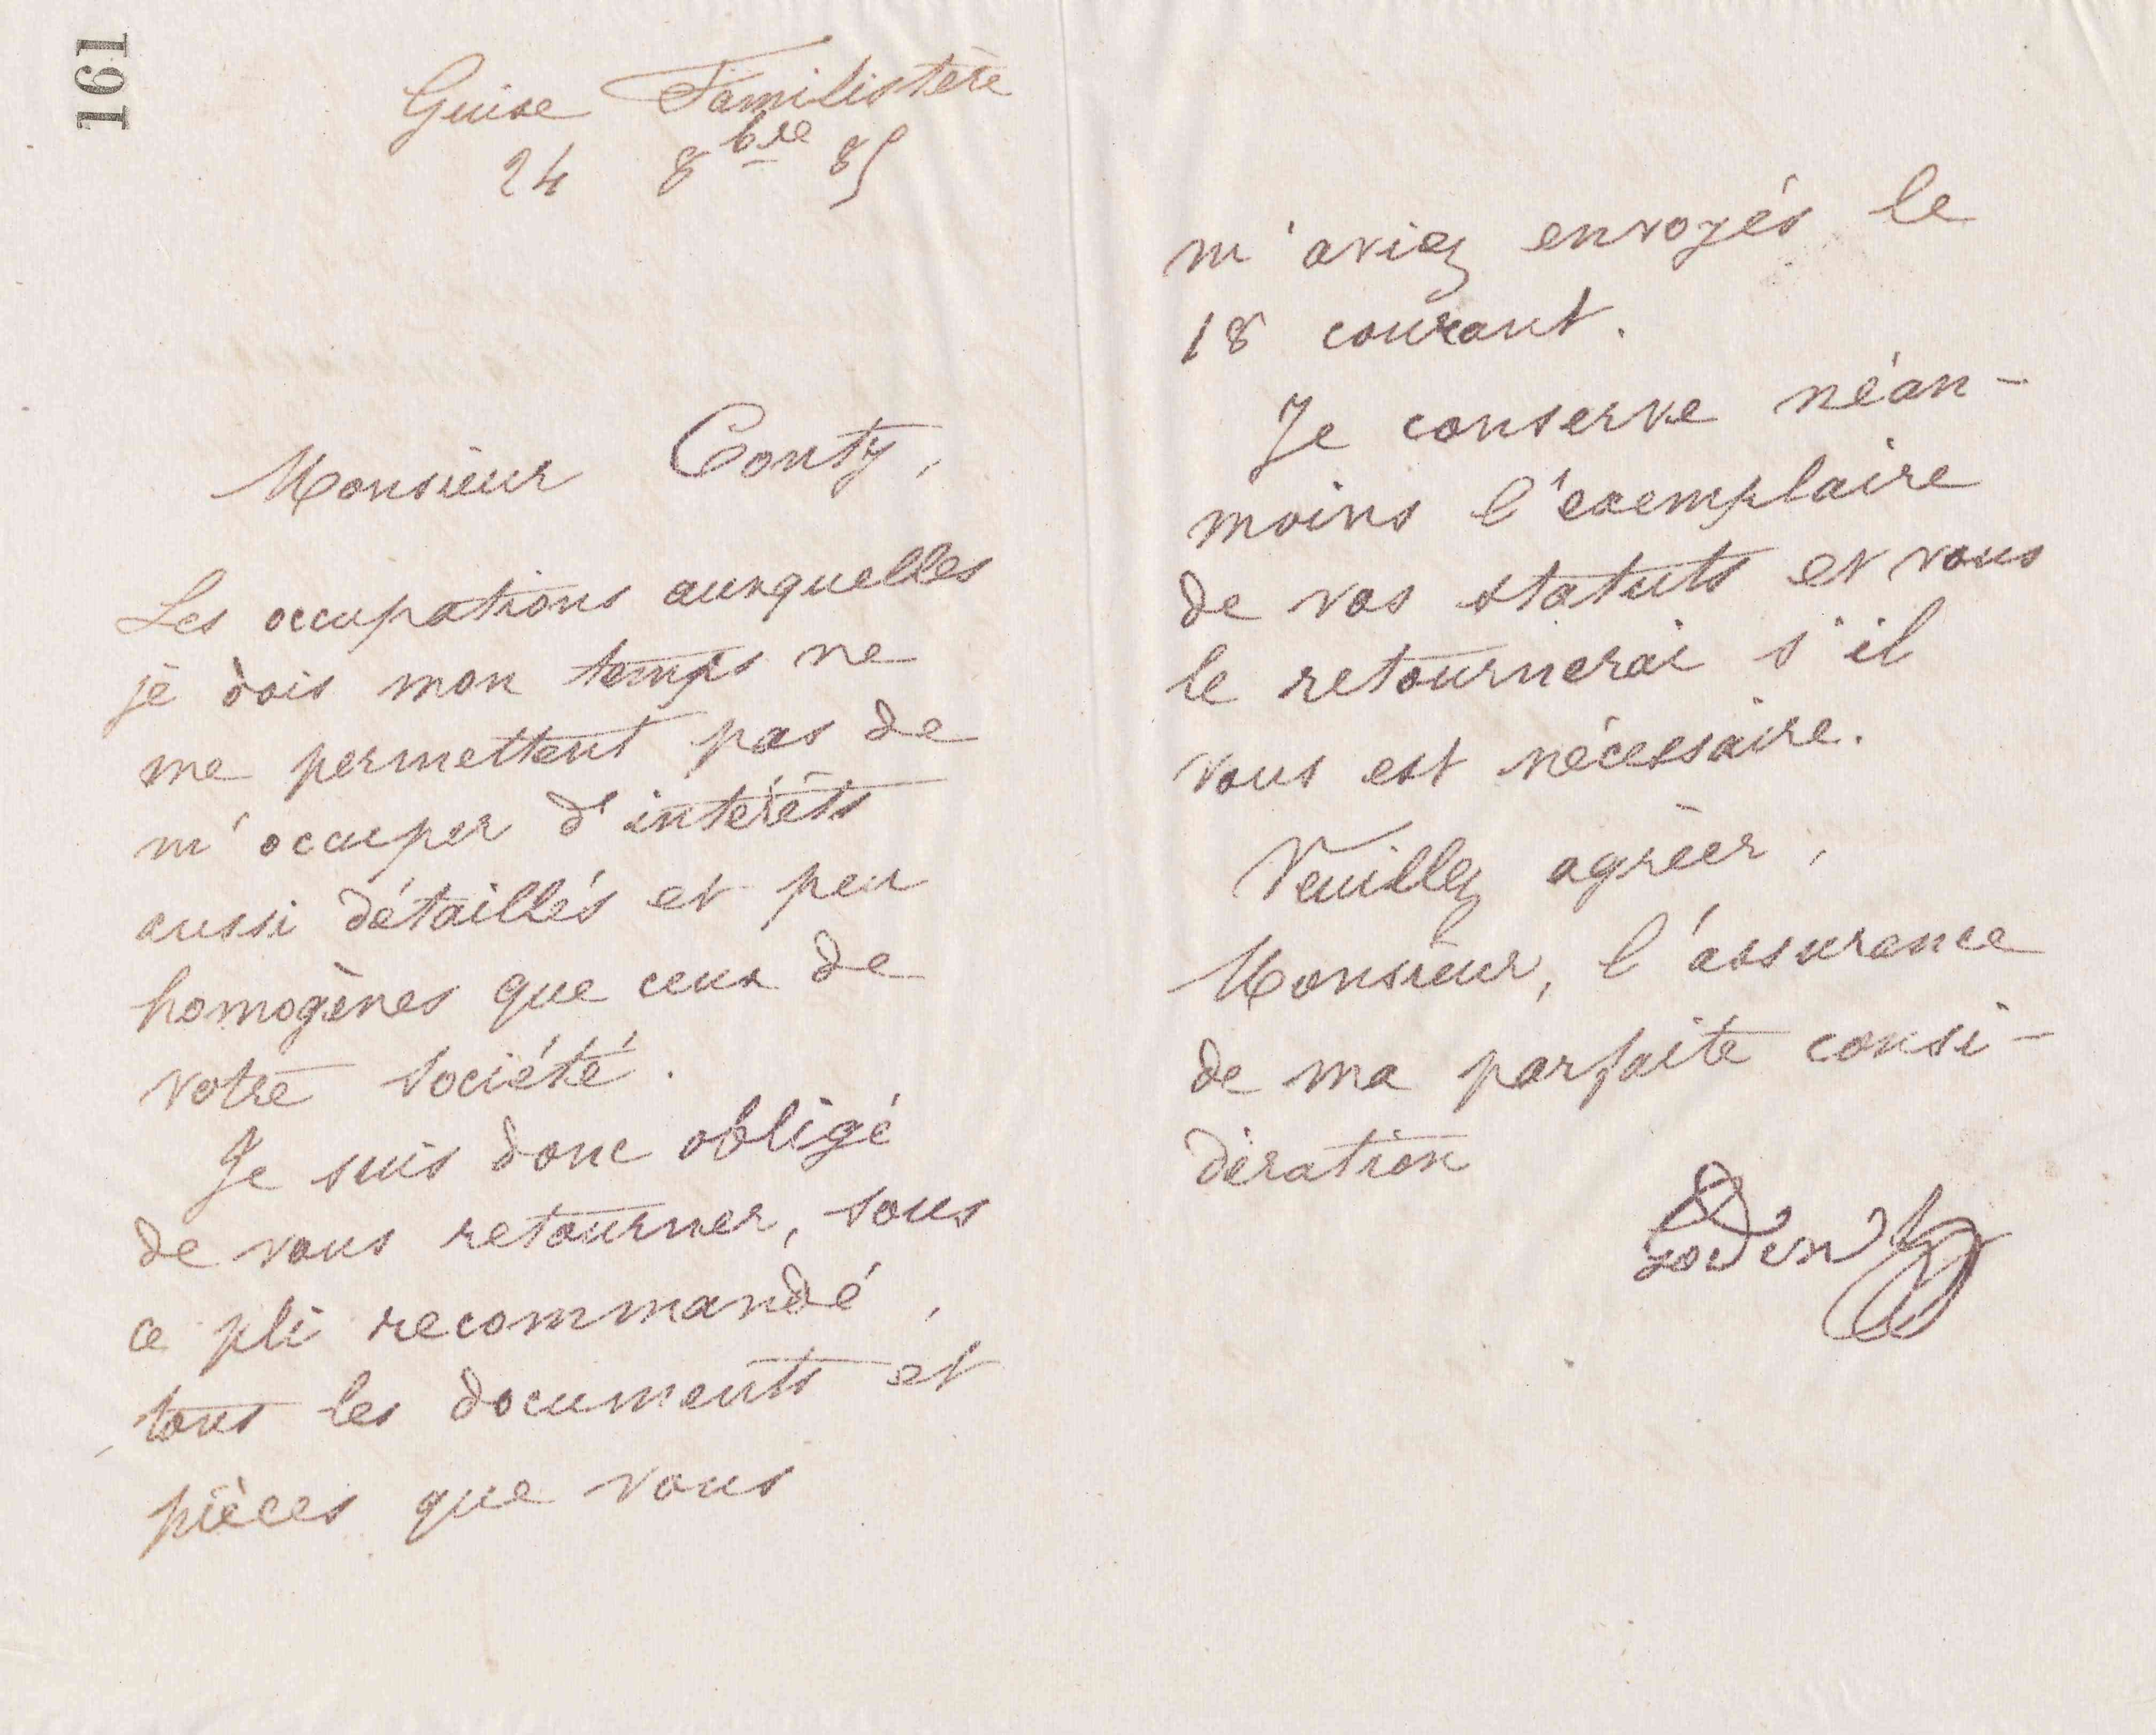 161
Guise Familistère
24 8bre 85
Monsieur Conty,
Les occupations auxquelles
je dois mon temps ne
me permettent pas de
m'occuper d'intérêts
aussi détaillés et peu
homogènes que ceux de
votre société.
Je suis donc obligé
de vous retourner, sous
ce pli recommandé,
tous les documents et
pièces que vous
m'aviez envoyés le
18 courant.
Je conserve néan-
moins l'exemplaire
de vos statuts et vous
le retournerai s'il
vous est nécessaire.
Veuillez agréer,
Monsieur, l'assurance
de ma parfaite consi-
dération
Godin